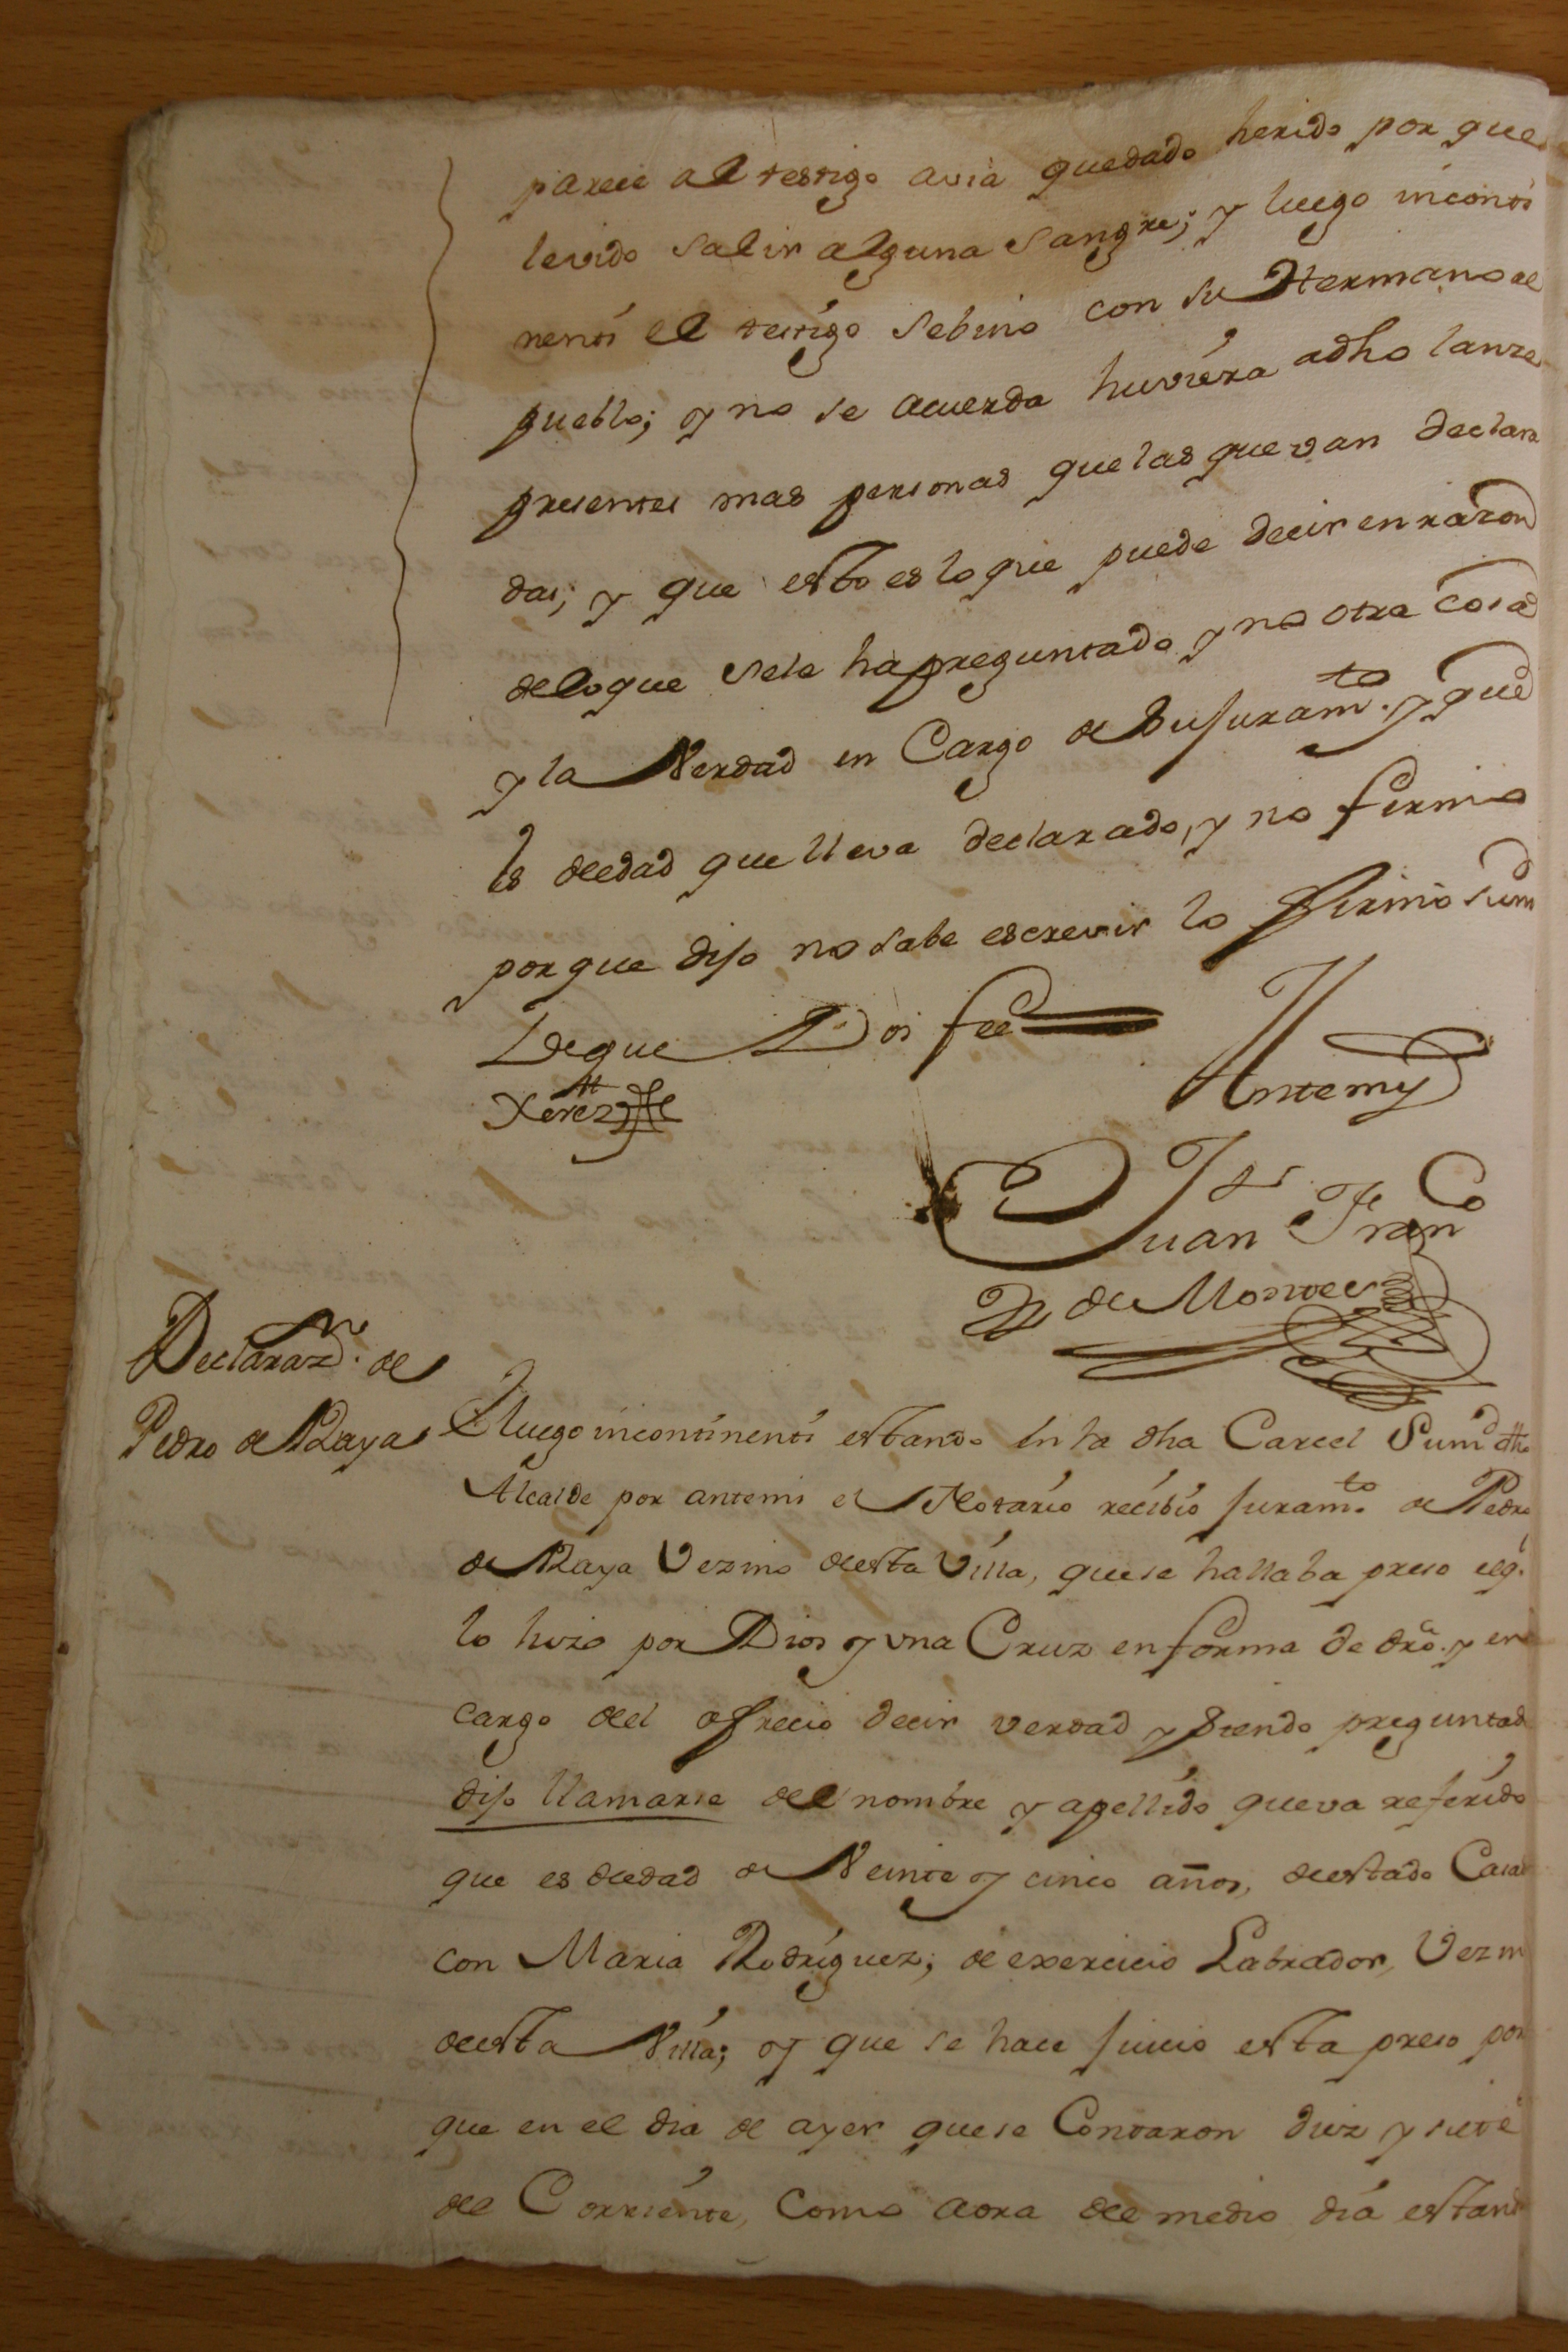 parece al testigo avia quedado herido por que
levido salir alguna sangre; y luego inconti
nenti el testigo sebino con su Hermano al
pueblo; y no se acuerda huviera adho lanze
presentes mas personas que las que van declara
das; y que esto es lo que puede decir en razon
delo que sele ha preguntado y no otra cosa
y la Verdad en Cargo de su juramto. y que
es deedad que lleva declarado, y no firmo
porque dijo no sabe escrevir lo firmo sum
de que Doi fee
Antemy
Xerez
Juan Franco
de Montes
Declarazn. de
Pedro de Raya
E luego incontinenti estando en la dha Carcel Sumd dho
Alcalde por antemi el Notario recibio juramto. de Pedro
de Raya Vezino deesta Villa, que se hallaba preso elq.
lo hizo por Dios y una Cruz en forma de dro. y en
cargo del ofrecio decir verdad y siendo preguntad
dijo llamarse del nombre y apellido que va referido
que es deedad de Veinte y cinco años, deestado Casad
con Maria Rodriguez; de exercicio Labrador, Vezin
deesta Villa; y que se hace juicio esta preso por
que en el dia de ayer que se Contaron diez y siete
del Corriente, Como aora del medio dia estand